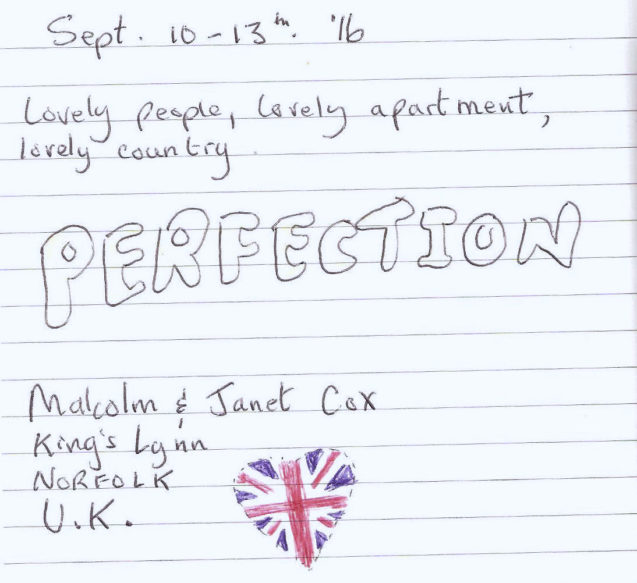 Sept. 10-13th. '16
Lovely people, lovely apartment,
lovely country.
PERFECTION
Malcolm & Janet Cox
King's Lynn
NORFOLK
U.K.